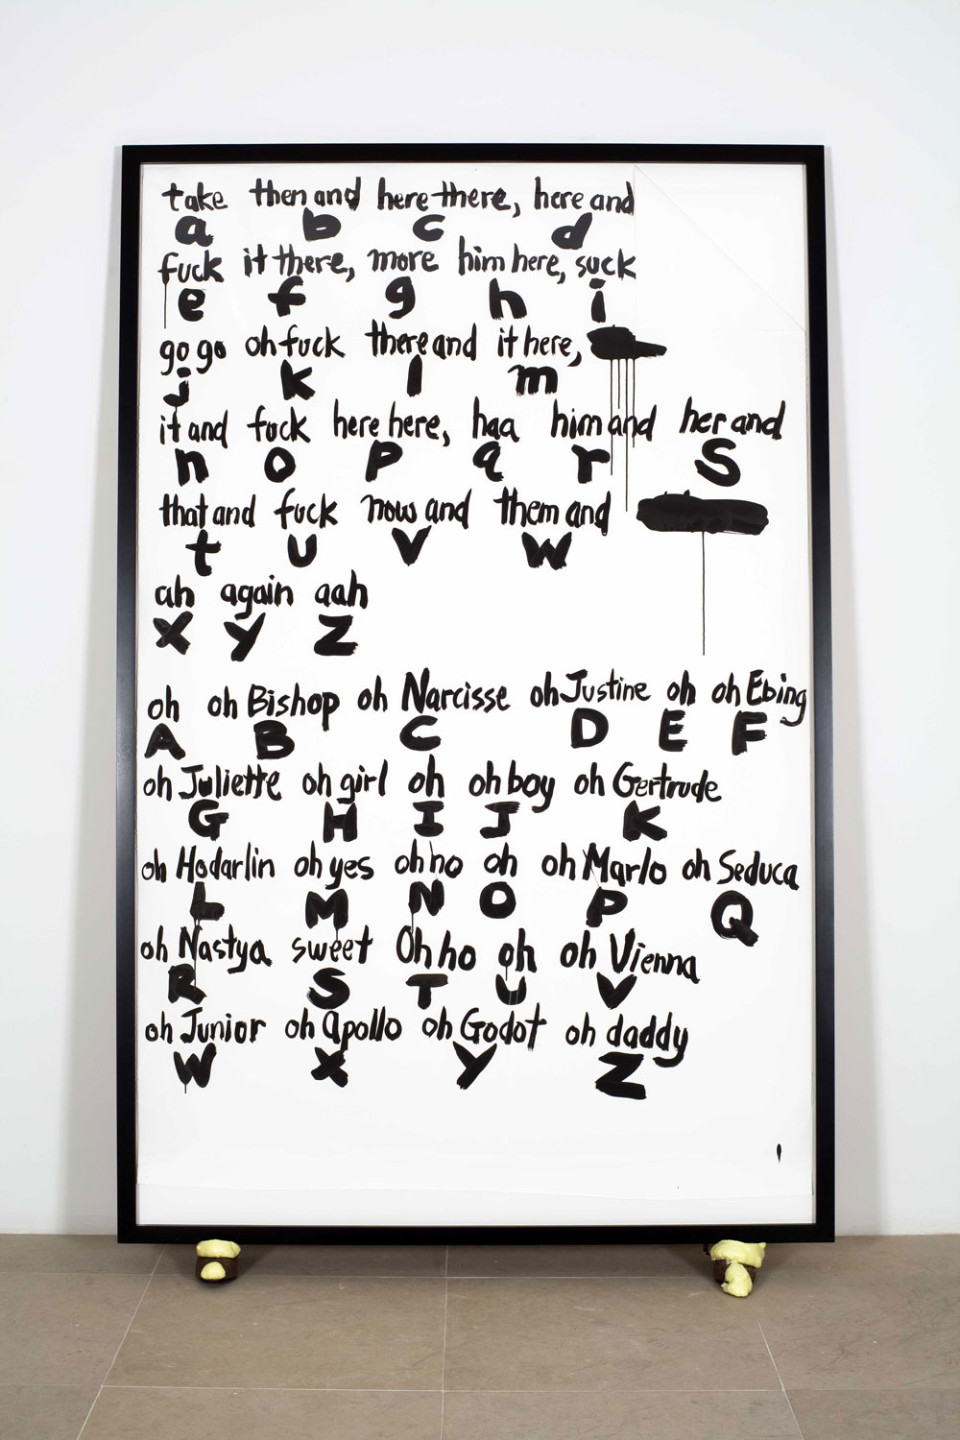 take then and here there, here and
a b c d
fuck it there, more him here, suck
e f g h i
go go oh fuck there and it here,
j k l m
it and fuck here here, haa him and her and
n o p q r S
that and fuck now and them and
t u v w
ah again aah
x y z
oh oh Bishop oh Narcisse oh Justine oh oh Ebing
A B C D E F
oh Juliette oh girl oh oh boy oh Gertrude
G H I J K
oh Hodarlin oh yes oh ho oh oh Marlo oh Seduca
L M N O P Q
oh Nastya sweet Oh ho oh oh Vienna
R S T U V
oh Junior oh apollo oh Godot oh daddy
W X Y Z